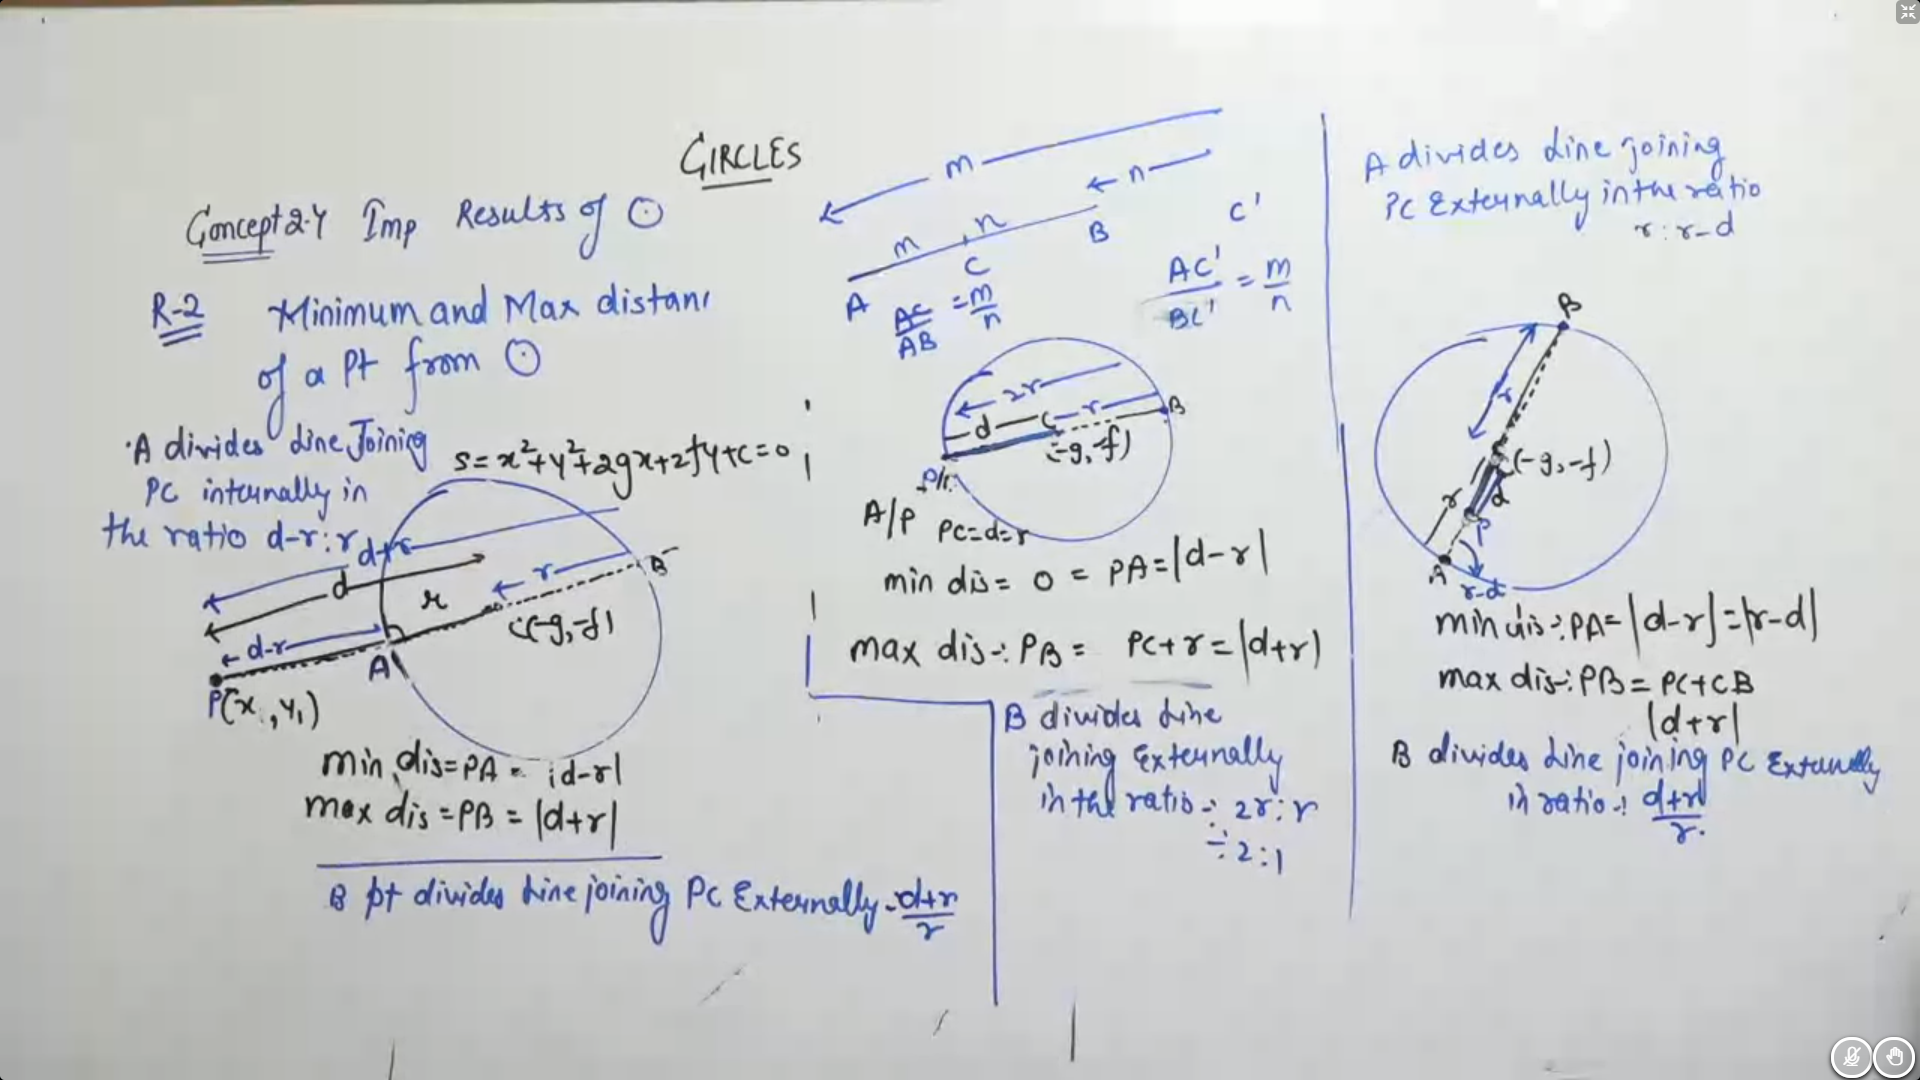 CIRCLES
Concept 2.4 Imp Results of ⊙
R-2 Minimum and Max distan
of a Pt from ⊙
· A divides Line Joining
PC internally in
the ratio d-r:r
S=x²+y²+2gx+2fy+c=0
d+r
d
r
r
B
d-r
(-g,-f)
A
P(x₁,y₁)
min dis=PA= |d-r|
max dis=PB = |d+r|
B pt divides Line joining PC Externally d+r/r
m
n
m n
A C B C'
AC/AB = m/n
AC'/BC' = m/n
2r
d C r B
(-g,-f)
A/P PC=d=r
min dis= 0 = PA=|d-r|
max dis-: PB = PC+r=|d+r|
B divides Line
joining Externally
in the ratio -: 2r:r
2:1
A divides Line joining
PC Externally in the ratio
r:r-d
B
r
(-g,-f)
r d
P
A
r-d
min dis-: PA=|d-r|=|r-d|
max dis-: PB= PC+CB
|d+r|
B divides Line joining PC Externally
in ratio-: d+r/r.